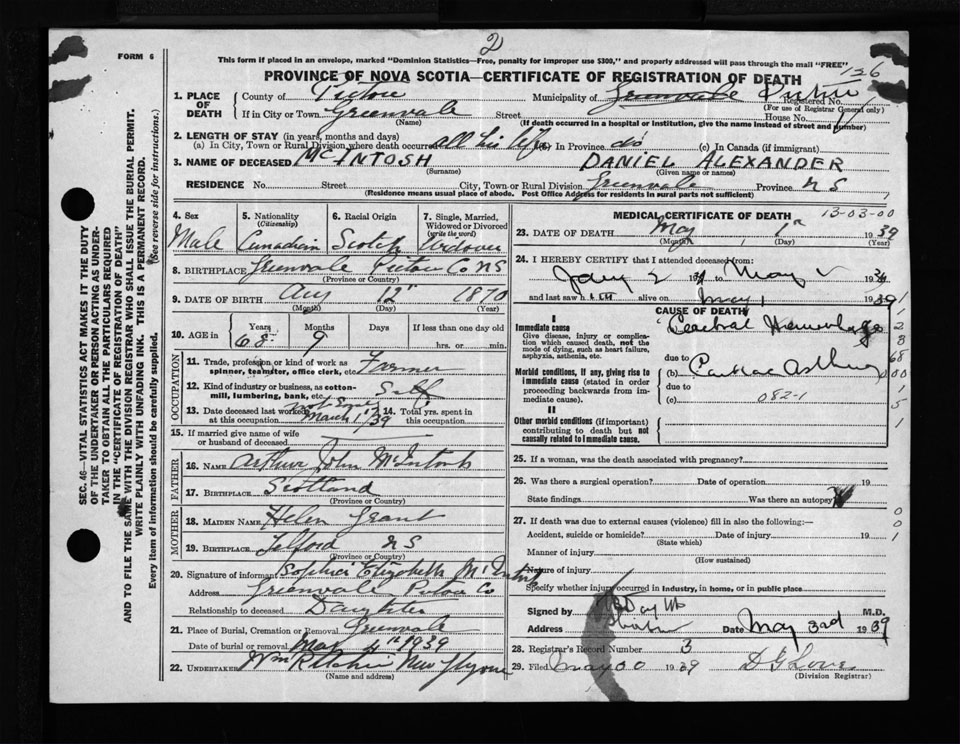 2
FORM 6
This form if placed in an envelope, marked "Dominion Statistics—Free, penalty for improper use $300," and properly addressed will pass through the mail "FREE"
PROVINCE OF NOVA SCOTIA—CERTIFICATE OF REGISTRATION OF DEATH
126
1. PLACE OF DEATH County of Pictou Municipality of Greenvale Pictou Registered No.
(For use of Registrar General only)
If in City or Town Greenvale Street House No.
(Name) (If death occurred in a hospital or institution, give the name instead of street and number)
2. LENGTH OF STAY (in years, months and days)
(a) In City, Town or Rural Division where death occurred all his life (b) In Province do (c) In Canada (if immigrant)
3. NAME OF DECEASED McINTOSH DANIEL ALEXANDER
(Surname) (Given name or names)
RESIDENCE No. Street City, Town or Rural Division Greenvale Province N S
(Residence means usual place of abode. Post Office Address for residents in rural parts not sufficient)
4. Sex 5. Nationality 6. Racial Origin 7. Single, Married, Widowed or Divorced
(Citizenship) (write the word)
Male Canadian Scotch Widower
8. BIRTHPLACE Greenvale Pictou Co N S
(Province or Country)
9. DATE OF BIRTH Aug 12th 1870
(Month) (Day) (Year)
10. AGE in Years Months Days If less than one day old
68 9 hrs. or min.
OCCUPATION
11. Trade, profession or kind of work as spinner, teamster, office clerk, etc. Farmer
12. Kind of industry or business, as cotton-mill, lumbering, bank, etc. Self
13. Date deceased last worked at this occupation March 1st /39 14. Total yrs. spent in this occupation
15. If married give name of wife or husband of deceased
FATHER
16. NAME Arthur John McIntosh
17. BIRTHPLACE Scotland
(Province or Country)
MOTHER
18. MAIDEN NAME Helen Grant
19. BIRTHPLACE Telford N S
(Province or Country)
20. Signature of informant Sophie Elizabeth McIntosh
Address Greenvale Pictou Co
Relationship to deceased Daughter
21. Place of Burial, Cremation or Removal Greenvale
Date of burial or removal May 4th 1939
22. UNDERTAKER Wm Ritchie New Glasgow
(Name and address)
MEDICAL CERTIFICATE OF DEATH 13-03-00
23. DATE OF DEATH May 1st 1939
(Month) (Day) (Year)
24. I HEREBY CERTIFY that I attended deceased from:
Jany 2 39 to May 1 1939
and last saw h im alive on May 1 1939
CAUSE OF DEATH
I
Immediate cause
Give disease, injury or complication which caused death, not the mode of dying, such as heart failure, asphyxia, asthenia, etc.
Cerebral Hemorrhage
due to
Morbid conditions, if any, giving rise to immediate cause (stated in order preceding backwards from immediate cause).
(b) Cardiac Asthma
due to
(c) 082-1
II
Other morbid conditions (if important) contributing to death but not causally related to Immediate cause.
25. If a woman, was the death associated with pregnancy?
26. Was there a surgical operation? Date of operation 19
State findings Was there an autopsy?
27. If death was due to external causes (violence) fill in also the following:—
Accident, suicide or homicide? Date of injury 19
(State which)
Manner of injury
(How sustained)
Nature of injury
Specify whether injury occurred in industry, in home, or in public place
Signed by M.D.
Address Date May 3rd 1939
28. Registrar's Record Number 3
29. Filed May 30 1939 D G Love
(Division Registrar)
SEC. 46—VITAL STATISTICS ACT MAKES IT THE DUTY
OF THE UNDERTAKER OR PERSON ACTING AS UNDER-
TAKER TO OBTAIN ALL THE PARTICULARS REQUIRED
IN THE "CERTIFICATE OF REGISTRATION OF DEATH"
AND TO FILE THE SAME WITH THE DIVISION REGISTRAR WHO SHALL ISSUE THE BURIAL PERMIT.
WRITE PLAINLY WITH UNFADING INK. THIS IS A PERMANENT RECORD.
Every item of information should be carefully supplied. (See reverse side for instructions.)